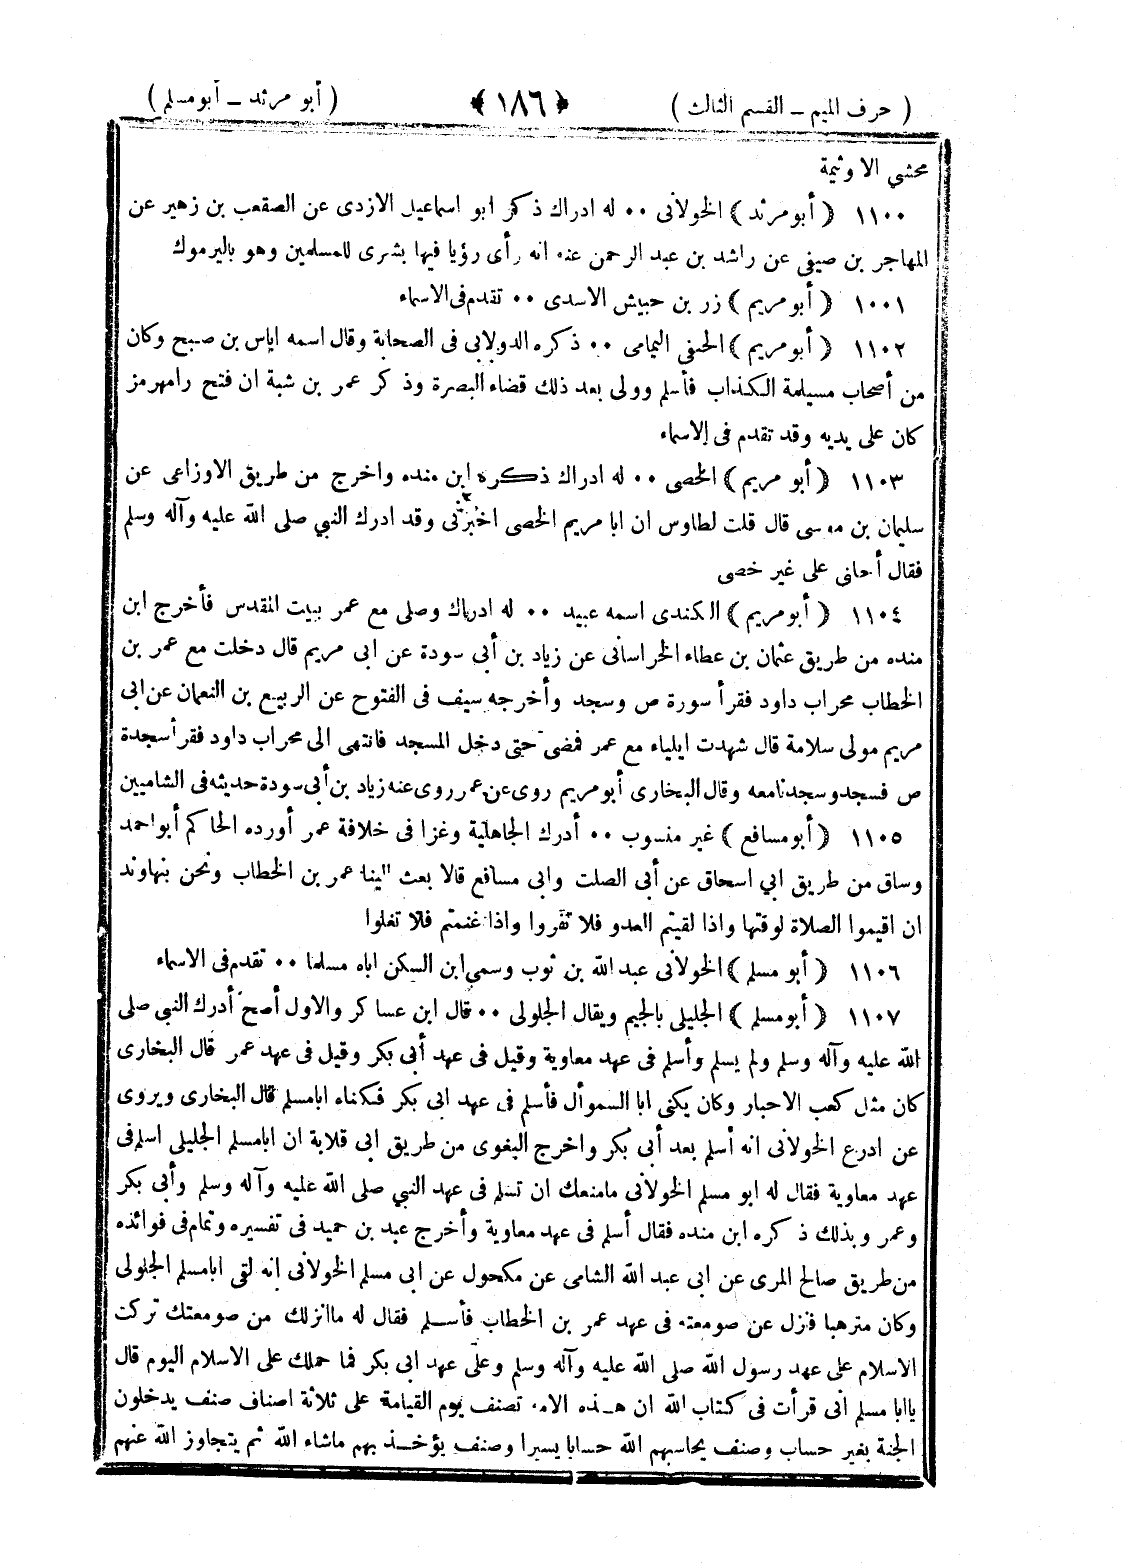 ( حرف الميم – القسم الثالث ) ﴿ ١٨٦ ﴾ ( أبو مرثد – أبومسلم )
محشي الا وثيمة
١١٠٠ ﴿ أبومرثد ﴾ الخولانى ٠٠ له ادراك ذكر ابو اسماعيل الازدى عن الصقعب بن زهير عن
المهاجر بن صيفي عن راشد بن عبد الرحمن عنه انه رأى رؤيا فيها بشرى للمسلمين وهو باليرموك
١٠٠١ ﴿ أبومريم ﴾ زر بن حبيش الاسدى ٠٠ تقدم فى الاسماء
١١٠٢ ﴿ أبومريم ﴾ الحنفى اليمامى ٠٠ ذكره الدولابى فى الصحابة وقال اسمه اياس بن صبح وكان
من أصحاب مسيلمة الكذاب فأسلم وولى بعد ذلك قضاء البصرة وذكر عمر بن شبة ان فتح رامهرمز
كان على يديه وقد تقدم فى الاسماء
١١٠٣ ﴿ أبو مريم ﴾ الخصى ٠٠ له ادراك ذكره ابن منده واخرج من طريق الاوزاعى عن
سليمان بن موسى قال قلت لطاوس ان ابا مريم الخصى اخبرنى وقد ادرك النبي صلى الله عليه وآله وسلم
فقال أحلنى على غير خصى
١١٠٤ ﴿ أبومريم ﴾ الكندى اسمه عبيد ٠٠ له ادراك وصلى مع عمر ببيت المقدس فأخرج ابن
منده من طريق عثمان بن عطاء الخراسانى عن زياد بن أبي سودة عن ابى مريم قال دخلت مع عمر بن
الخطاب محراب داود فقرأ سورة ص وسجد وأخرجه سيف فى الفتوح عن الربيع بن النعمان عن ابى
مريم مولى سلامة قال شهدت ايلياء مع عمر فمضى حتى دخل المسجد فانتهى الى محراب داود فقرأ سجدة
ص فسجد وسجدنامعه وقال البخارى أبومريم روى عن عمر روى عنه زياد بن أبى سودة حديثه فى الشاميين
١١٠٥ ﴿ أبومسافع ﴾ غير منسوب ٠٠ أدرك الجاهلية وغزا فى خلافة عمر أورده الحاكم أبو احمد
وساق من طريق ابي اسحاق عن أبى الصلت وابى مسافع قالا بعث الينا عمر بن الخطاب ونحن بنهاوند
ان اقيموا الصلاة لوقتها واذا لقيتم العدو فلا تفروا واذا غنمتم فلا تغلوا
١١٠٦ ﴿ أبو مسلم ﴾ الخولانى عبد الله بن ثوب وسمي ابن السكن اباه مسلما ٠٠ تقدم فى الاسماء
١١٠٧ ﴿ أبومسلم ﴾ الجليلى بالجيم ويقال الجلولى ٠٠ قال ابن عساكر والاول أصح أدرك النبي صلى
الله عليه وآله وسلم ولم يسلم وأسلم فى عهد معاوية وقيل فى عهد أبى بكر وقيل فى عهد عمر قال البخارى
كان مثل كعب الاحبار وكان يكنى ابا السموأل فأسلم فى عهد ابى بكر فكناه ابامسلم قال البخارى ويروى
عن ادرع الخولانى انه أسلم بعد أبى بكر واخرج البغوى من طريق ابى قلابة ان ابامسلم الجليلى اسلم فى
عهد معاوية فقال له ابو مسلم الخولانى مامنعك ان تسلم فى عهد النبي صلى الله عليه وآله وسلم وأبى بكر
وعمر وبذلك ذكره ابن منده فقال أسلم فى عهد معاوية وأخرج عبد بن حميد فى تفسيره وتمام فى فوائده
من طريق صالح المرى عن ابى عبد الله الشامى عن مكحول عن ابى مسلم الخولانى انه لقى ابامسلم الجلولى
وكان مترهبا فنزل عن صومعته فى عهد عمر بن الخطاب فأسلم فقال له ماانزلك من صومعتك تركت
الاسلام على عهد رسول الله صلى الله عليه وآله وسلم وعلى عهد ابى بكر فما حملك على الاسلام اليوم قال
ياابا مسلم انى قرأت فى كتاب الله ان هذه الامة تصنف يوم القيامة على ثلاثة اصناف صنف يدخلون
الجنة بغير حساب وصنف يحاسبهم الله حسابا يسيرا وصنف يؤخذ بهم ماشاء الله ثم يتجاوز الله عنهم